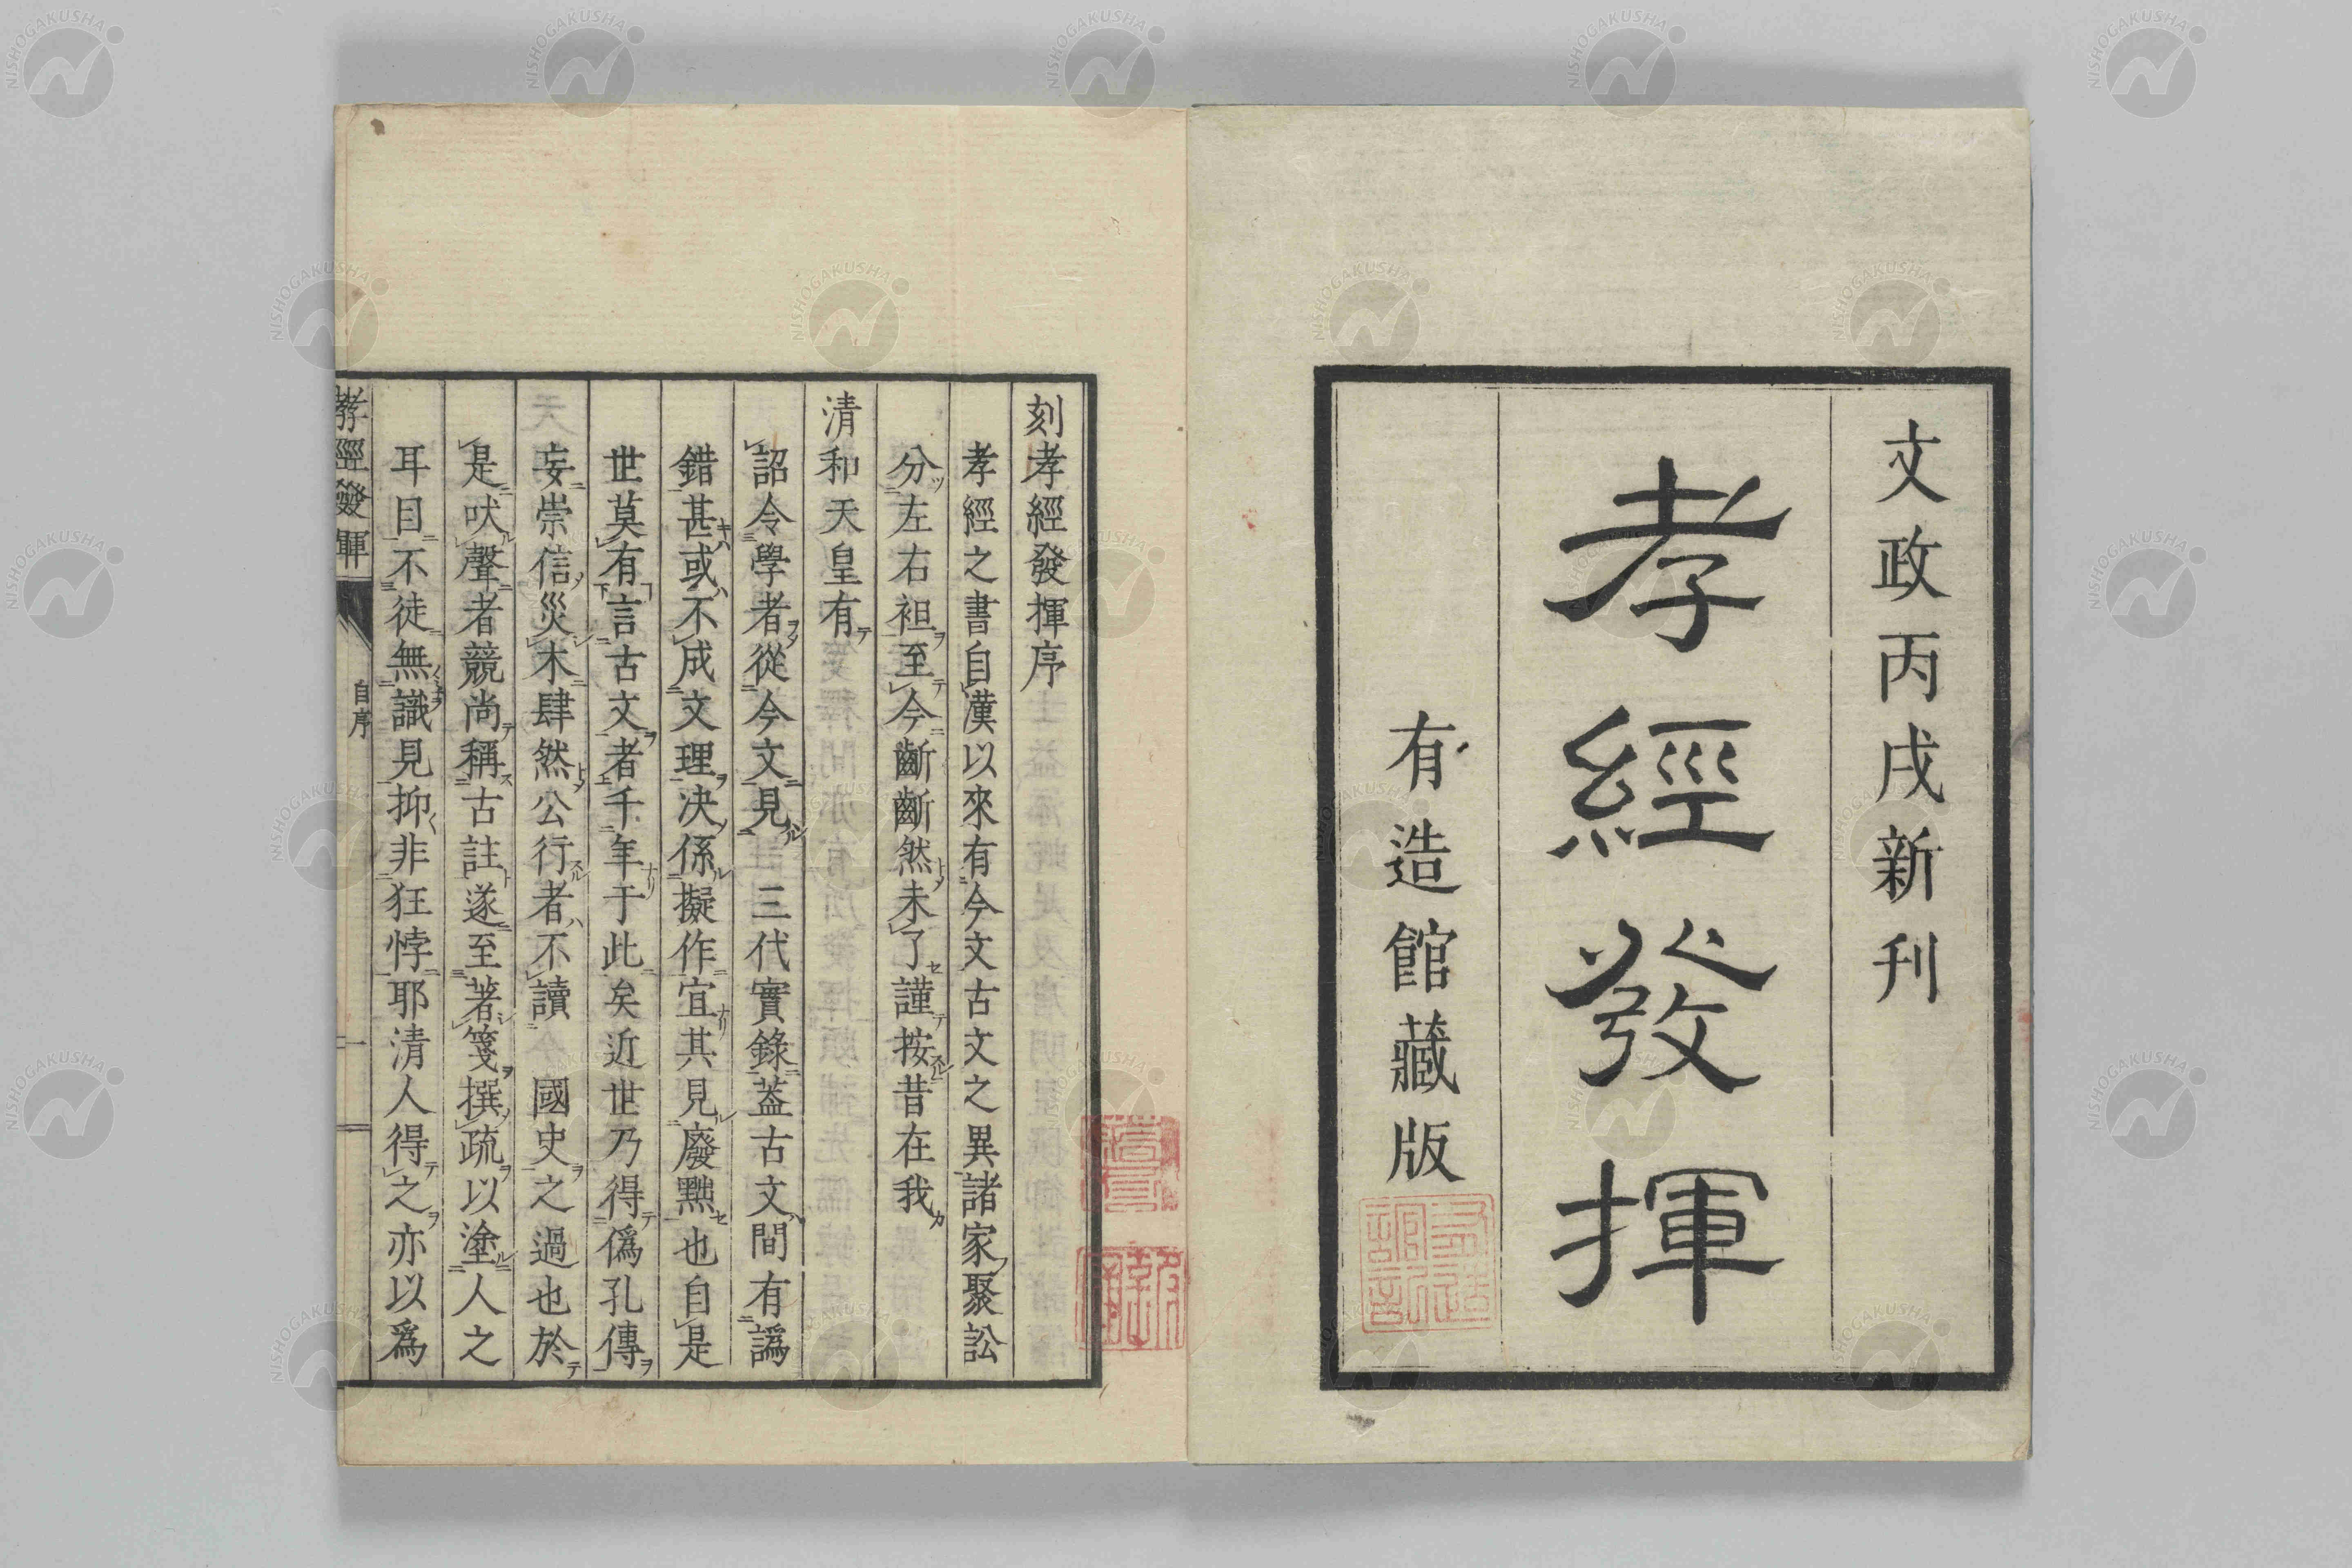 文政丙戌新刊
孝經發揮
有造館藏版
刻孝經發揮序
孝經之書自漢以來有今文古文之異諸家聚訟
分左右袒至今齗齗然未了謹按昔在我
清和天皇有
詔令學者從今文見 三代實錄蓋古文間有譌
錯甚或不成文理決係擬作宜其見廢黜也自是
世莫有言古文者千年于此矣近世乃得僞孔傳
妄崇信災木肆然公行者不讀 國史之過也於
是吠聲者競尚稱古註遂至著箋撰疏以塗人之
耳目不徒無識見抑非狂悖耶清人得之亦以爲
孝經發揮
自序
一
NISHOGAKUSHA